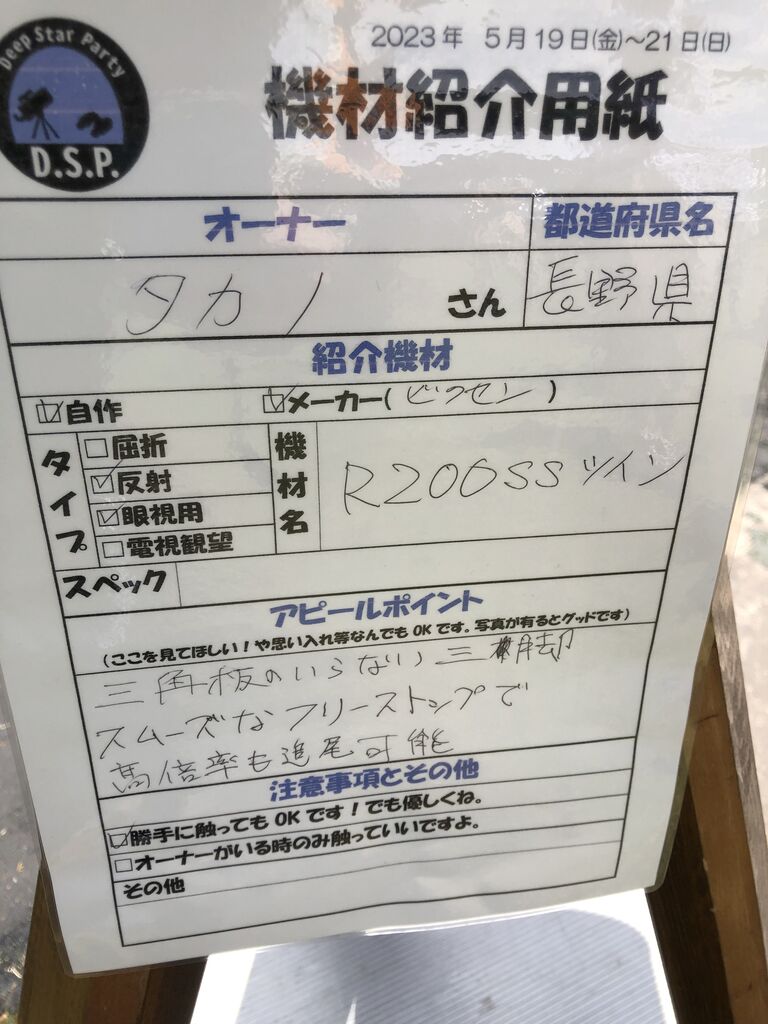 Deep Star Party
D.S.P.
2023年 5月19日(金)~21日(日)
機材紹介用紙
オーナー
都道府県名
タカノ さん
長野県
紹介機材
☑自作 ☑メーカー(ビクセン)
タイプ
□屈折
☑反射
☑眼視用
□電視観望
機材名
R200SSツイン
スペック
アピールポイント
(ここを見てほしい!や思い入れ等なんでもOKです。写真が有るとグッドです)
三角板のいらない三脚
スムーズなフリーストップで
高倍率も追尾可能
注意事項とその他
☑勝手に触ってもOKです!でも優しくね。
□オーナーがいる時のみ触っていいですよ。
その他